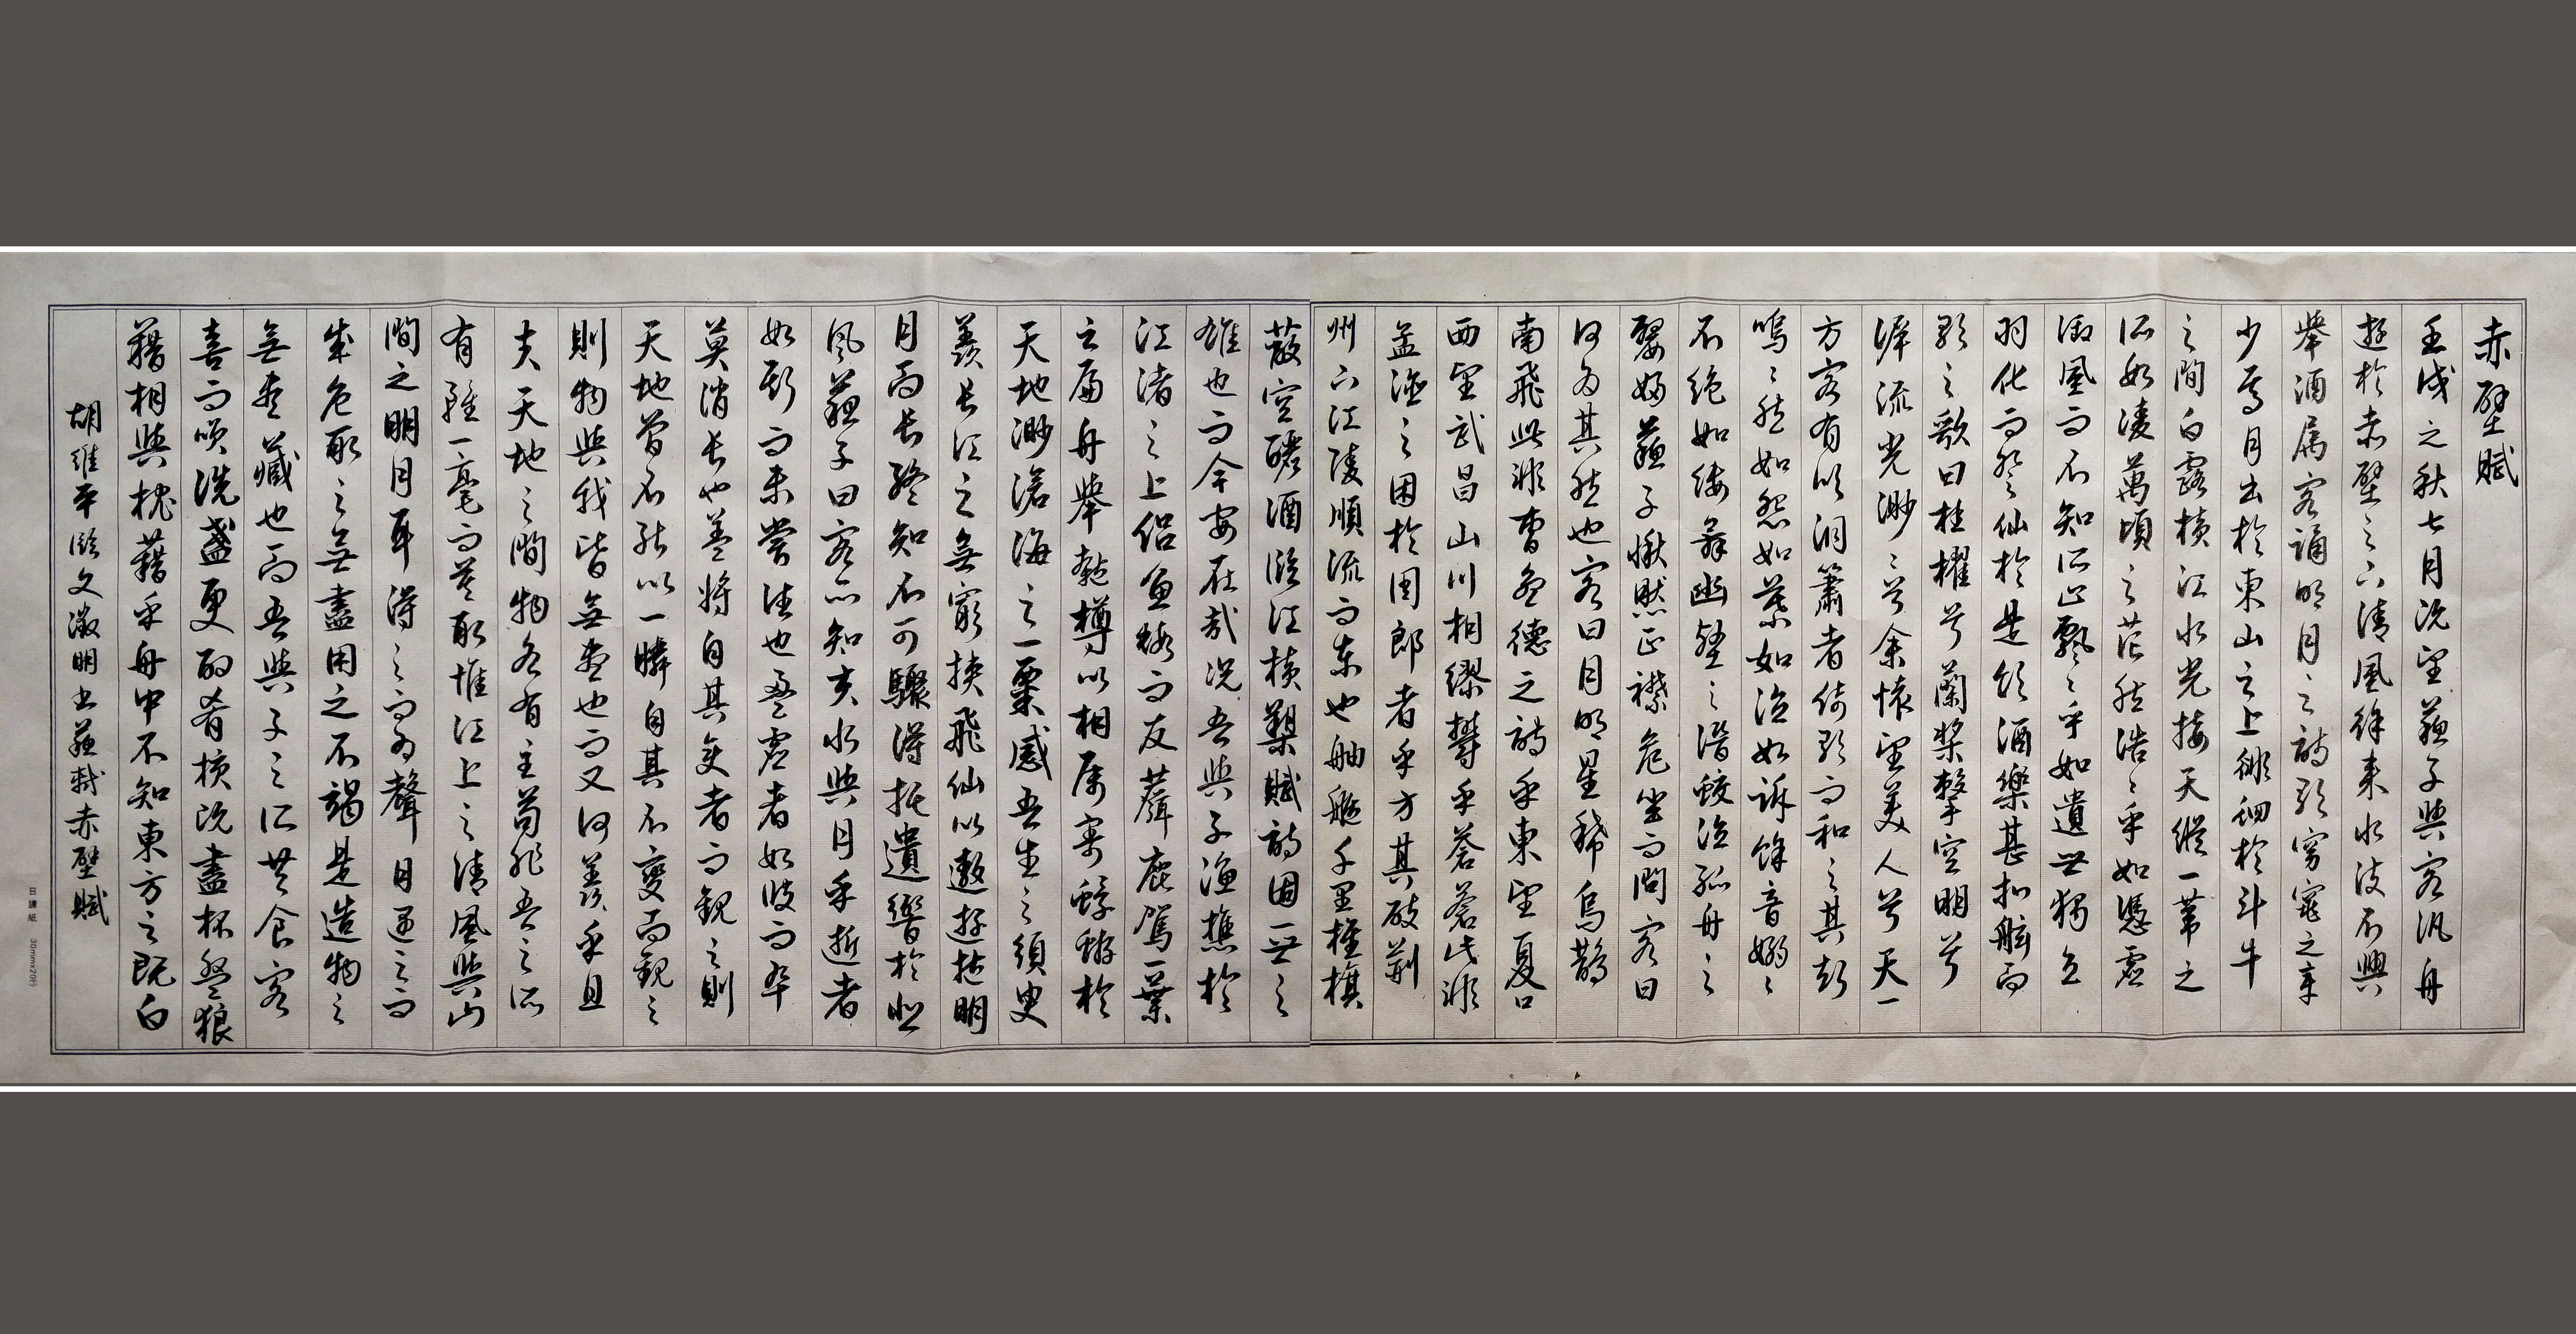 赤壁賦
壬戌之秋七月既望蘇子與客汎舟
遊於赤壁之下清風徐來水波不興
舉酒屬客誦明月之詩歌窈窕之章
少焉月出於東山之上徘徊於斗牛
之間白露橫江水光接天縱一葦之
所如凌萬頃之茫然浩〻乎如憑虛
御風而不知所止飄〻乎如遺世獨立
羽化而登仙於是飲酒樂甚扣舷而
歌之歌曰桂櫂兮蘭槳擊空明兮
泝流光渺〻兮余懷望美人兮天一
方客有吹洞簫者倚歌而和之其聲
嗚〻然如怨如慕如泣如訴餘音嫋〻
不絕如縷舞幽壑之潛蛟泣孤舟之
嫠婦蘇子愀然正襟危坐而問客曰
何為其然也客曰月明星稀烏鵲
南飛此非曹孟德之詩乎東望夏口
西望武昌山川相繆鬱乎蒼蒼此非
孟德之困於周郎者乎方其破荊
州下江陵順流而東也舳艫千里旌旗
蔽空釃酒臨江橫槊賦詩固一世之
雄也而今安在哉況吾與子漁樵於
江渚之上侶魚蝦而友麋鹿駕一葉
之扁舟舉匏樽以相屬寄蜉蝣於
天地渺滄海之一粟感吾生之須臾
羨長江之無窮挾飛仙以遨遊抱明
月而長終知不可驟得托遺響於悲
風蘇子曰客亦知夫水與月乎逝者
如斯而未嘗往也盈虛者如彼而卒
莫消長也蓋將自其變者而觀之則
天地曾不能以一瞬自其不變而觀之
則物與我皆無盡也而又何羨乎且
夫天地之間物各有主苟非吾之所
有雖一毫而莫取惟江上之清風與山
間之明月耳得之而為聲目遇之而
成色取之無盡用之不竭是造物之
無盡藏也而吾與子之所共食客
喜而笑洗盞更酌肴核既盡杯盤狼
藉相與枕藉乎舟中不知東方之既白
胡維平臨文徵明書蘇軾赤壁賦
日課紙 30mmx20行